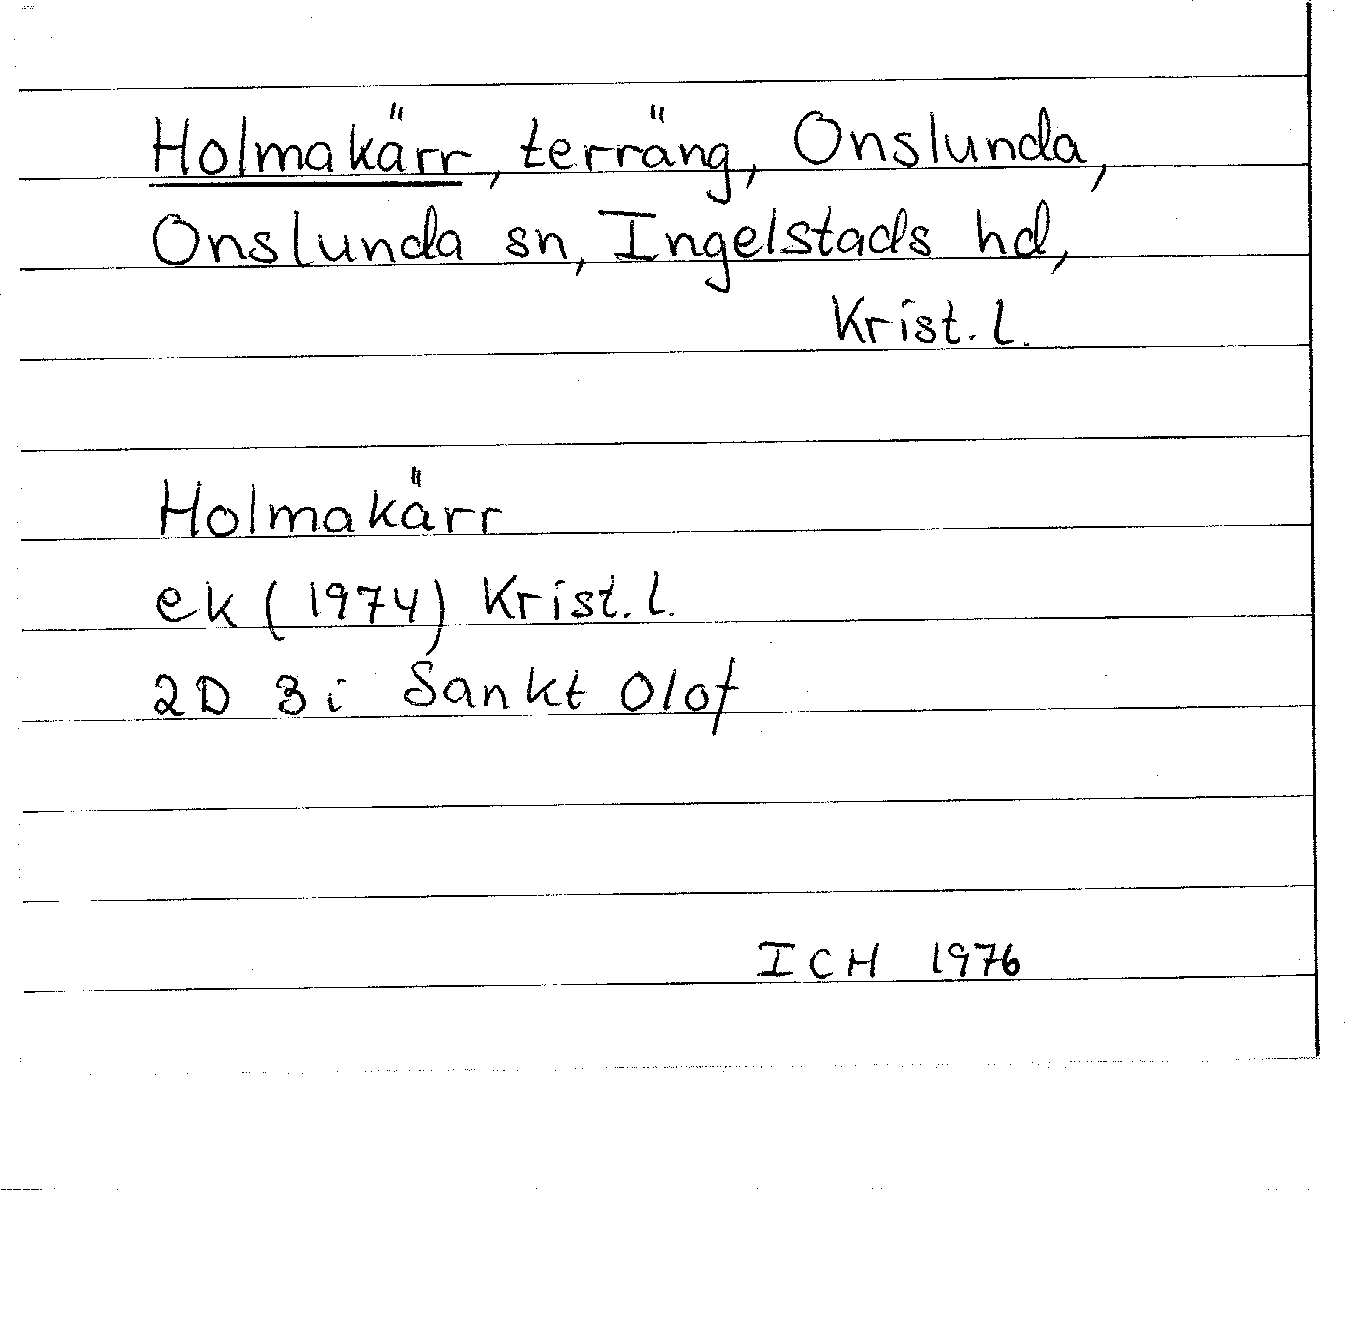 Holmakärr, terräng, Onslunda,
Onslunda sn, Ingelstads hd,
Krist. l.
Holmakärr
ek (1974) Krist. l.
2D 3i Sankt Olof
ICH 1976